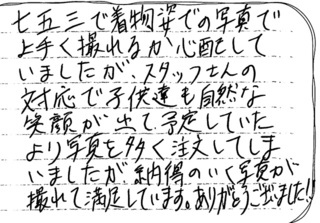 七五三で着物姿での写真で
上手く撮れるか心配をして
いましたが、スタッフさんの
対応で子供達も自然な
笑顔が出て予定していた
より写真を多く注文してしま
いましたが納得のいく写真が
撮れて満足しています。ありがとうございました!!